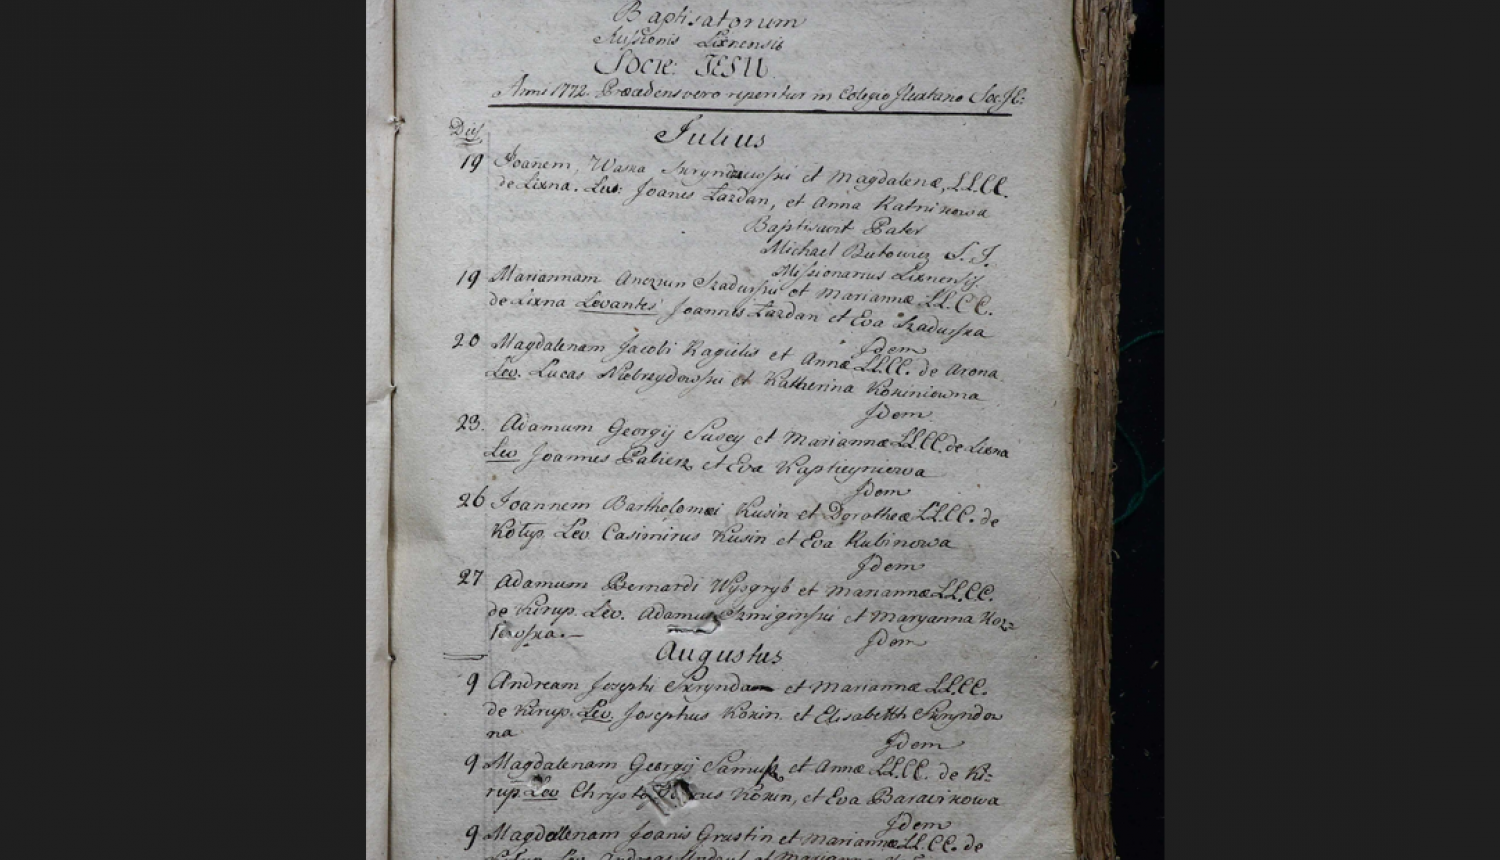 Baptisatorum
Missionis Lixnensis
Socie: JESU
Anni 1772. Præcedens vero reperitur in Colegio Ilextano Soc. JE:
Dies
Julius
19 Joanem, Waska et Magdalenæ, LL.CC.
de Lixna. Lev: Joanes Łazdan, et Anna Ratnikowa
Baptisavit Pater
Michael Butowicz S. J.
Missionarius Lixnensis.
19 Mariannam Szadurski et Mariannæ LL.CC.
de Lixna Levantes Joannes Łazdan et Eva Szadurska
Idem
20 Magdalenam Jacobi Ragielis et Annæ LL.CC. de Arona
Lev. Lucas Niebrzydowski et Katherina Kokiniowna
Idem
23. Adamum Georgij Susey et Mariannæ LL.CC. de Lixna
Lev Joannes et Eva
Idem
26 Joannem Bartholomæi Kusin et Dorotheæ LL.CC. de
Kołup. Lev. Casimirus Kusin et Eva Rubinowa
Idem
27 Adamum Bernardi Wysgryb et Mariannæ LL.CC.
de Kirup. Lev. Adamus Szmiginski et Maryanna Koz=
łowska.—
Idem
Augustus
9 Andream Josephi Skrynda et Mariannæ LL.CC.
de Kirup. Lev. Josephus Kokin. et Elisabetth Skryndow
na
Idem
9 Magdalenam Georgij et Annæ LL.CC. de Ki=
rup Lev Kokin, et Eva Barawikowa
Idem
9 Magdallenam Joanis Grustin et Mariannæ LL.CC. de